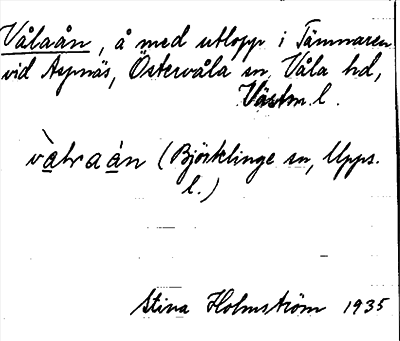 Vålaån, å med utlopp i Tämnaren
vid Aspnäs, Östervåla sn, Våla hd,
Västm. l.
vàlraán (Björklinge sn, Upps.
l.)
Stina Holmström 1935